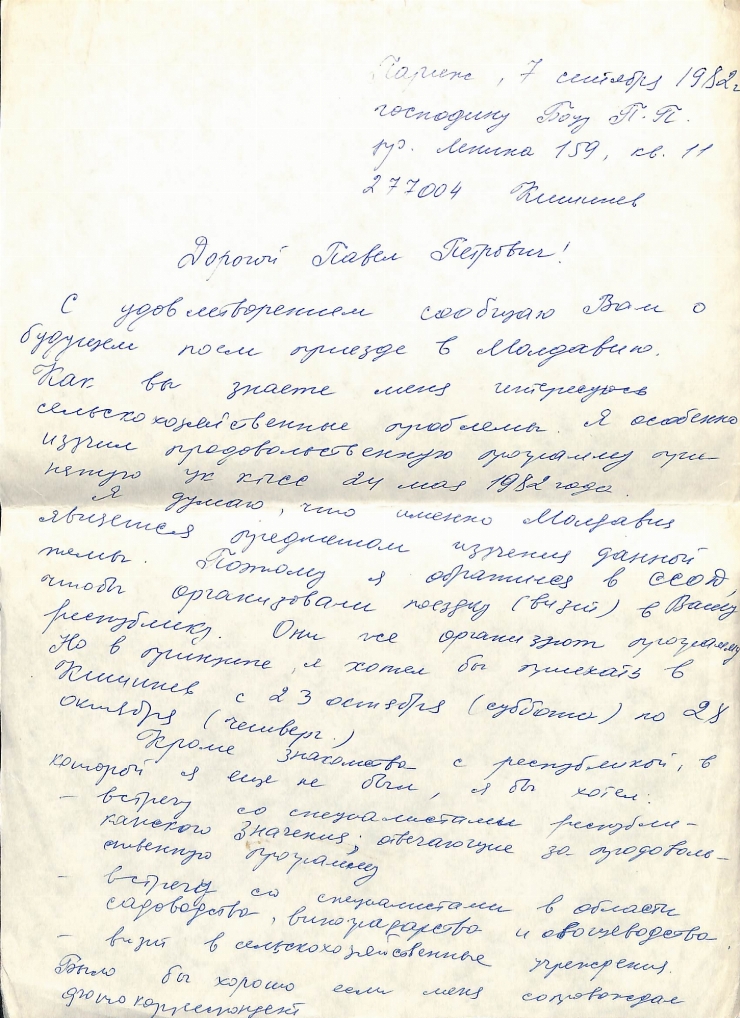 Париж, 7 сентября 1982г
господину Боуз П.П.
ул. Ленина 159, кв. 11
277004 Кишинев
Дорогой Павел Петрович!
С удовлетворением сообщаю Вам о
будущем моем приезде в Молдавию.
Как вы знаете меня интересуюс
сельскохозяйственные проблемы. Я особенно
изучил продовольственную программу при-
нятую ЦК КПСС 24 мая 1982 года.
Я думаю, что именно Молдавия
является предметом изучения данной
темы. Поэтому я обратился в ССОД,
чтобы организовали поездку (визит) в Вашу
республику. Они же организуют программу
Но в принципе, я хотел бы приехать в
Кишинев с 23 октября (суббота) по 28
октября (четверг.)
Кроме знакомства с республикой, в
которой я еще не был, я бы хотел:
- встречу со специалистамы республи-
канского значения, отвечающие за продоволь-
ственную программу
- встречу со специалистами в области
садоводства, виноградарства и овощеводства
- визит в сельскохозяйственные учреждения.
Было бы хорошо если меня сопровождал
фотокорреспондент